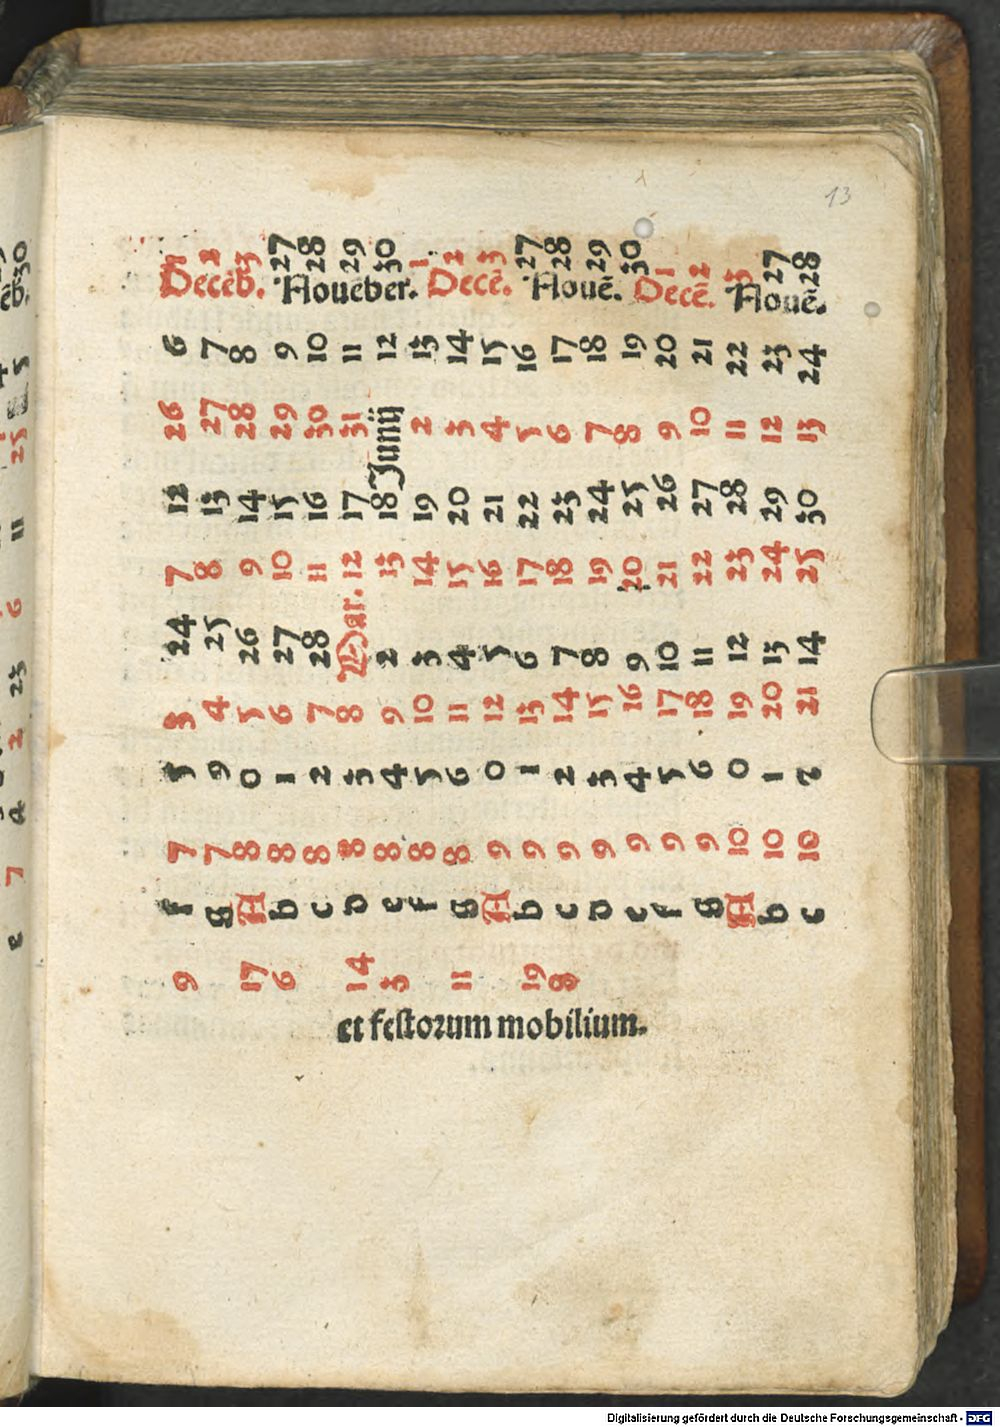 13
Decēb. Nouēber. Decē. Nouē. Decē. Nouē.
9 f 7 5 3 24 7 12 26 6 1
g 7 9 4 25 8 13 27 7 2
17 A 8 0 5 26 9 14 28 8 3
6 b 8 1 6 27 10 15 29 9 27
c 8 2 7 28 11 16 30 10 28
14 d 8 3 8 Mar. 12 17 31 11 29
3 e 8 4 9 2 13 18 Junij 12 30
f 8 5 10 3 14 19 2 13 1
11 g 8 6 11 4 15 20 3 14 2
A 9 0 12 5 16 21 4 15 3
19 b 9 1 13 6 17 22 5 16 27
8 c 9 2 14 7 18 23 6 17 28
d 9 3 15 8 19 24 7 18 29
e 9 4 16 9 20 25 8 19 30
f 9 5 17 10 21 26 9 20 1
g 9 6 18 11 22 27 10 21 2
A 10 0 19 12 23 28 11 22 3
b 10 1 20 13 24 29 12 23 27
c 10 2 21 14 25 30 13 24 28
et festorum mobilium.
Digitalisierung gefördert durch die Deutsche Forschungsgemeinschaft - DFG